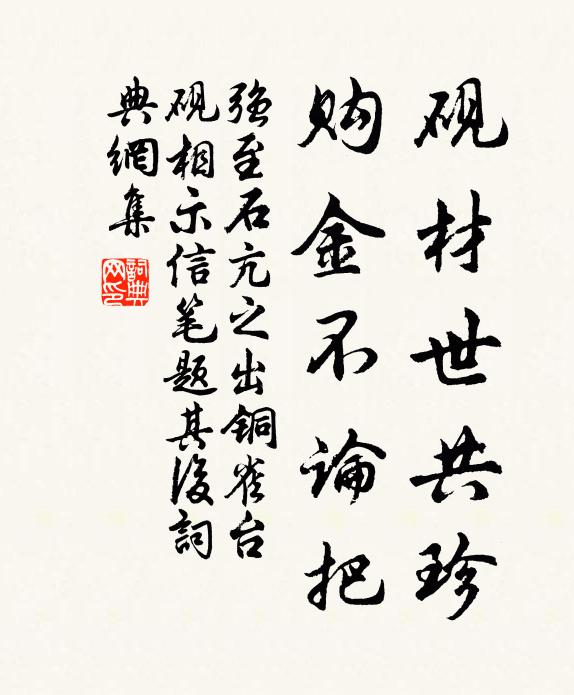 砚材世共珍
购金不论把
强至石亢之出铜雀台
砚相示信笔题其后词
典网集
詞典网印